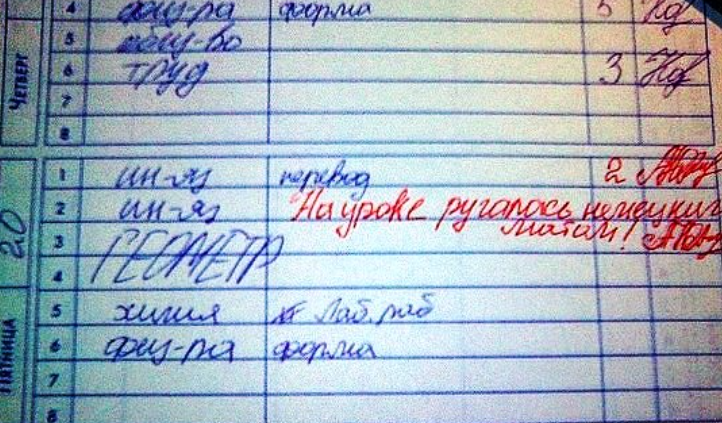 4 физ-ра форма 5
5 общ-во
6 труд 3
ЧЕТВЕРГ
7
8
1 ин-яз перевод 2
2 ин-яз На уроке ругалось немецким
матом!
3 ГЕОМЕТР
4
20
5 химия Лаб. раб
6 физ-ра форма
ПЯТНИЦА
7
8